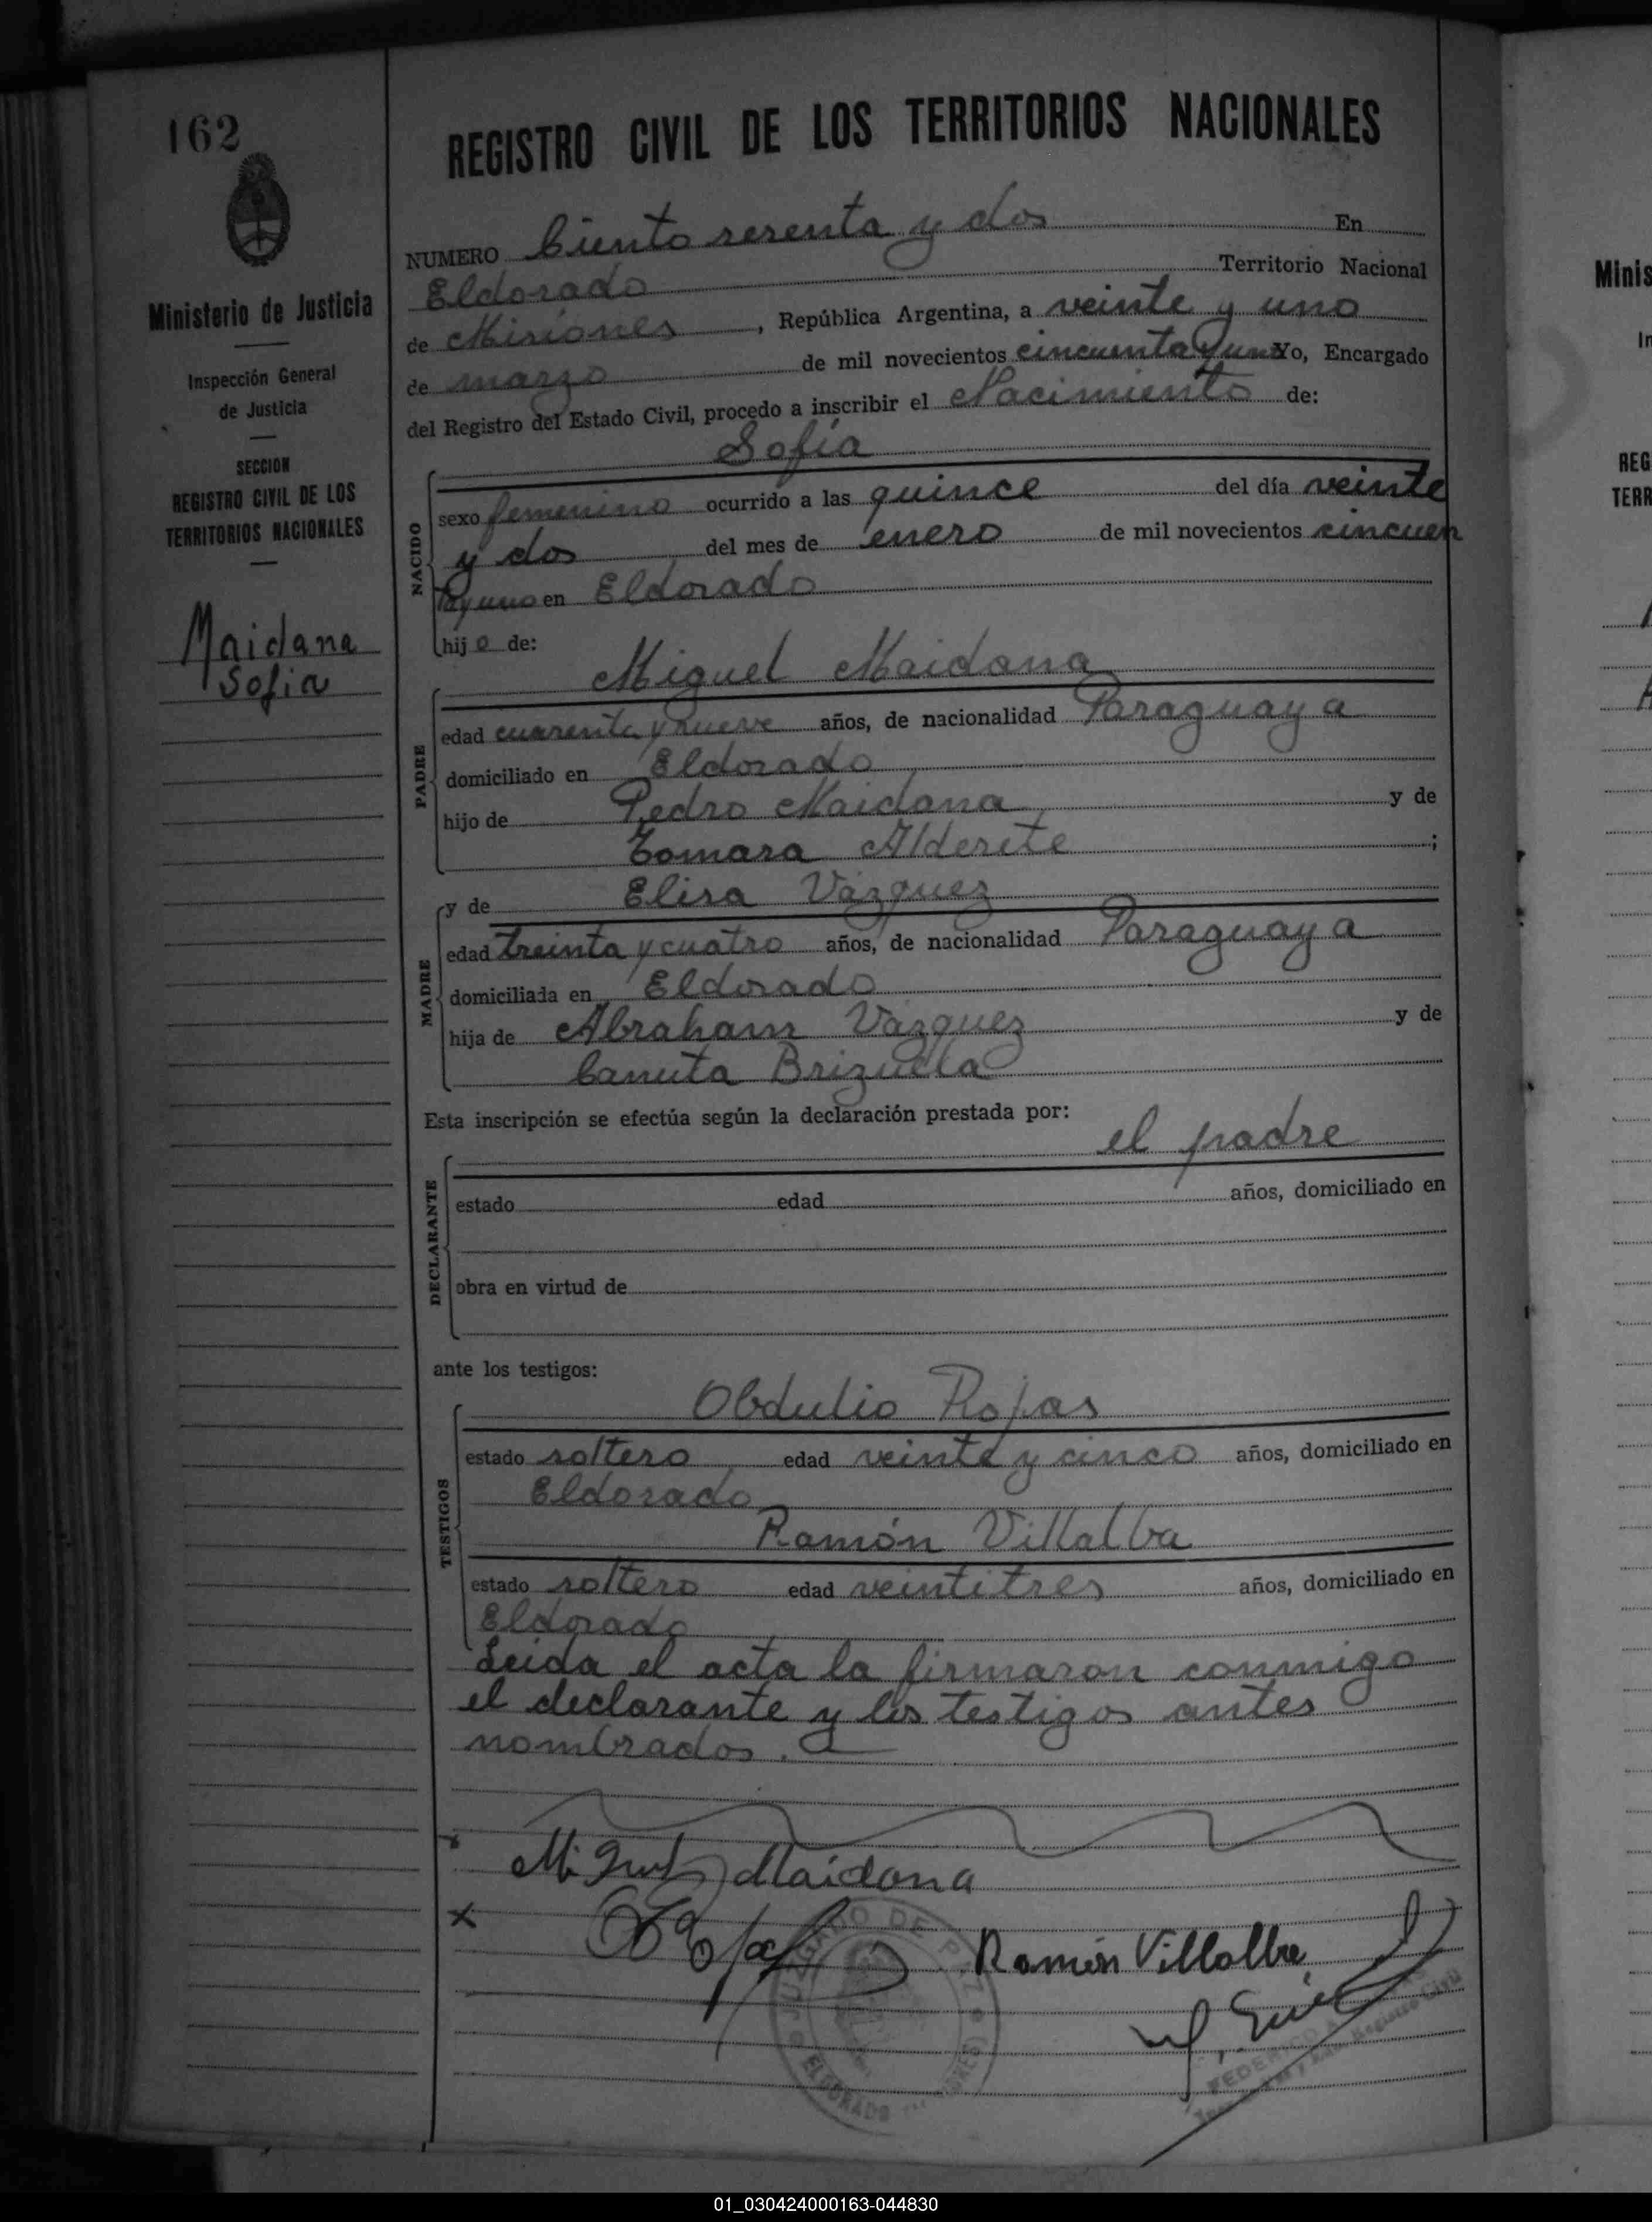 162
Ministerio de Justicia
Inspección General
de Justicia
SECCION
REGISTRO CIVIL DE LOS
TERRITORIOS NACIONALES
Maidana
Sofia
REGISTRO CIVIL DE LOS TERRITORIOS NACIONALES
NUMERO Ciento sesenta y dos En
Eldorado Territorio Nacional
de Misiones, República Argentina, a veinte y uno
de marzo de mil novecientos cincuenta y uno Yo, Encargado
del Registro del Estado Civil, procedo a inscribir el Nacimiento de:
Sofía
NACIDO
sexo femenino ocurrido a las quince del día veinte
y dos del mes de enero de mil novecientos cincuen
ta y uno en Eldorado
hij a de:
Miguel Maidana
PADRE
edad cuarenta y nueve años, de nacionalidad Paraguaya
domiciliado en Eldorado
hijo de Pedro Maidana y de
Tomasa Alderete ;
y de Elisa Vázquez
MADRE
edad treinta y cuatro años, de nacionalidad Paraguaya
domiciliada en Eldorado
hija de Abraham Vázquez y de
Canuta Brizuela
Esta inscripción se efectúa según la declaración prestada por:
el padre
DECLARANTE
estado edad años, domiciliado en
obra en virtud de
ante los testigos:
Obdulio Rojas
TESTIGOS
estado soltero edad veinte y cinco años, domiciliado en
Eldorado
Ramón Villalba
estado soltero edad veintitres años, domiciliado en
Eldorado
Leida el acta la firmaron conmigo
el declarante y los testigos antes
nombrados.
Miguel Maidana
Ramón Villalba
JUZGADO DE PAZ
ELDORADO
Registro Civil
Minis
In
REG
TERR
01_030424000163-044830